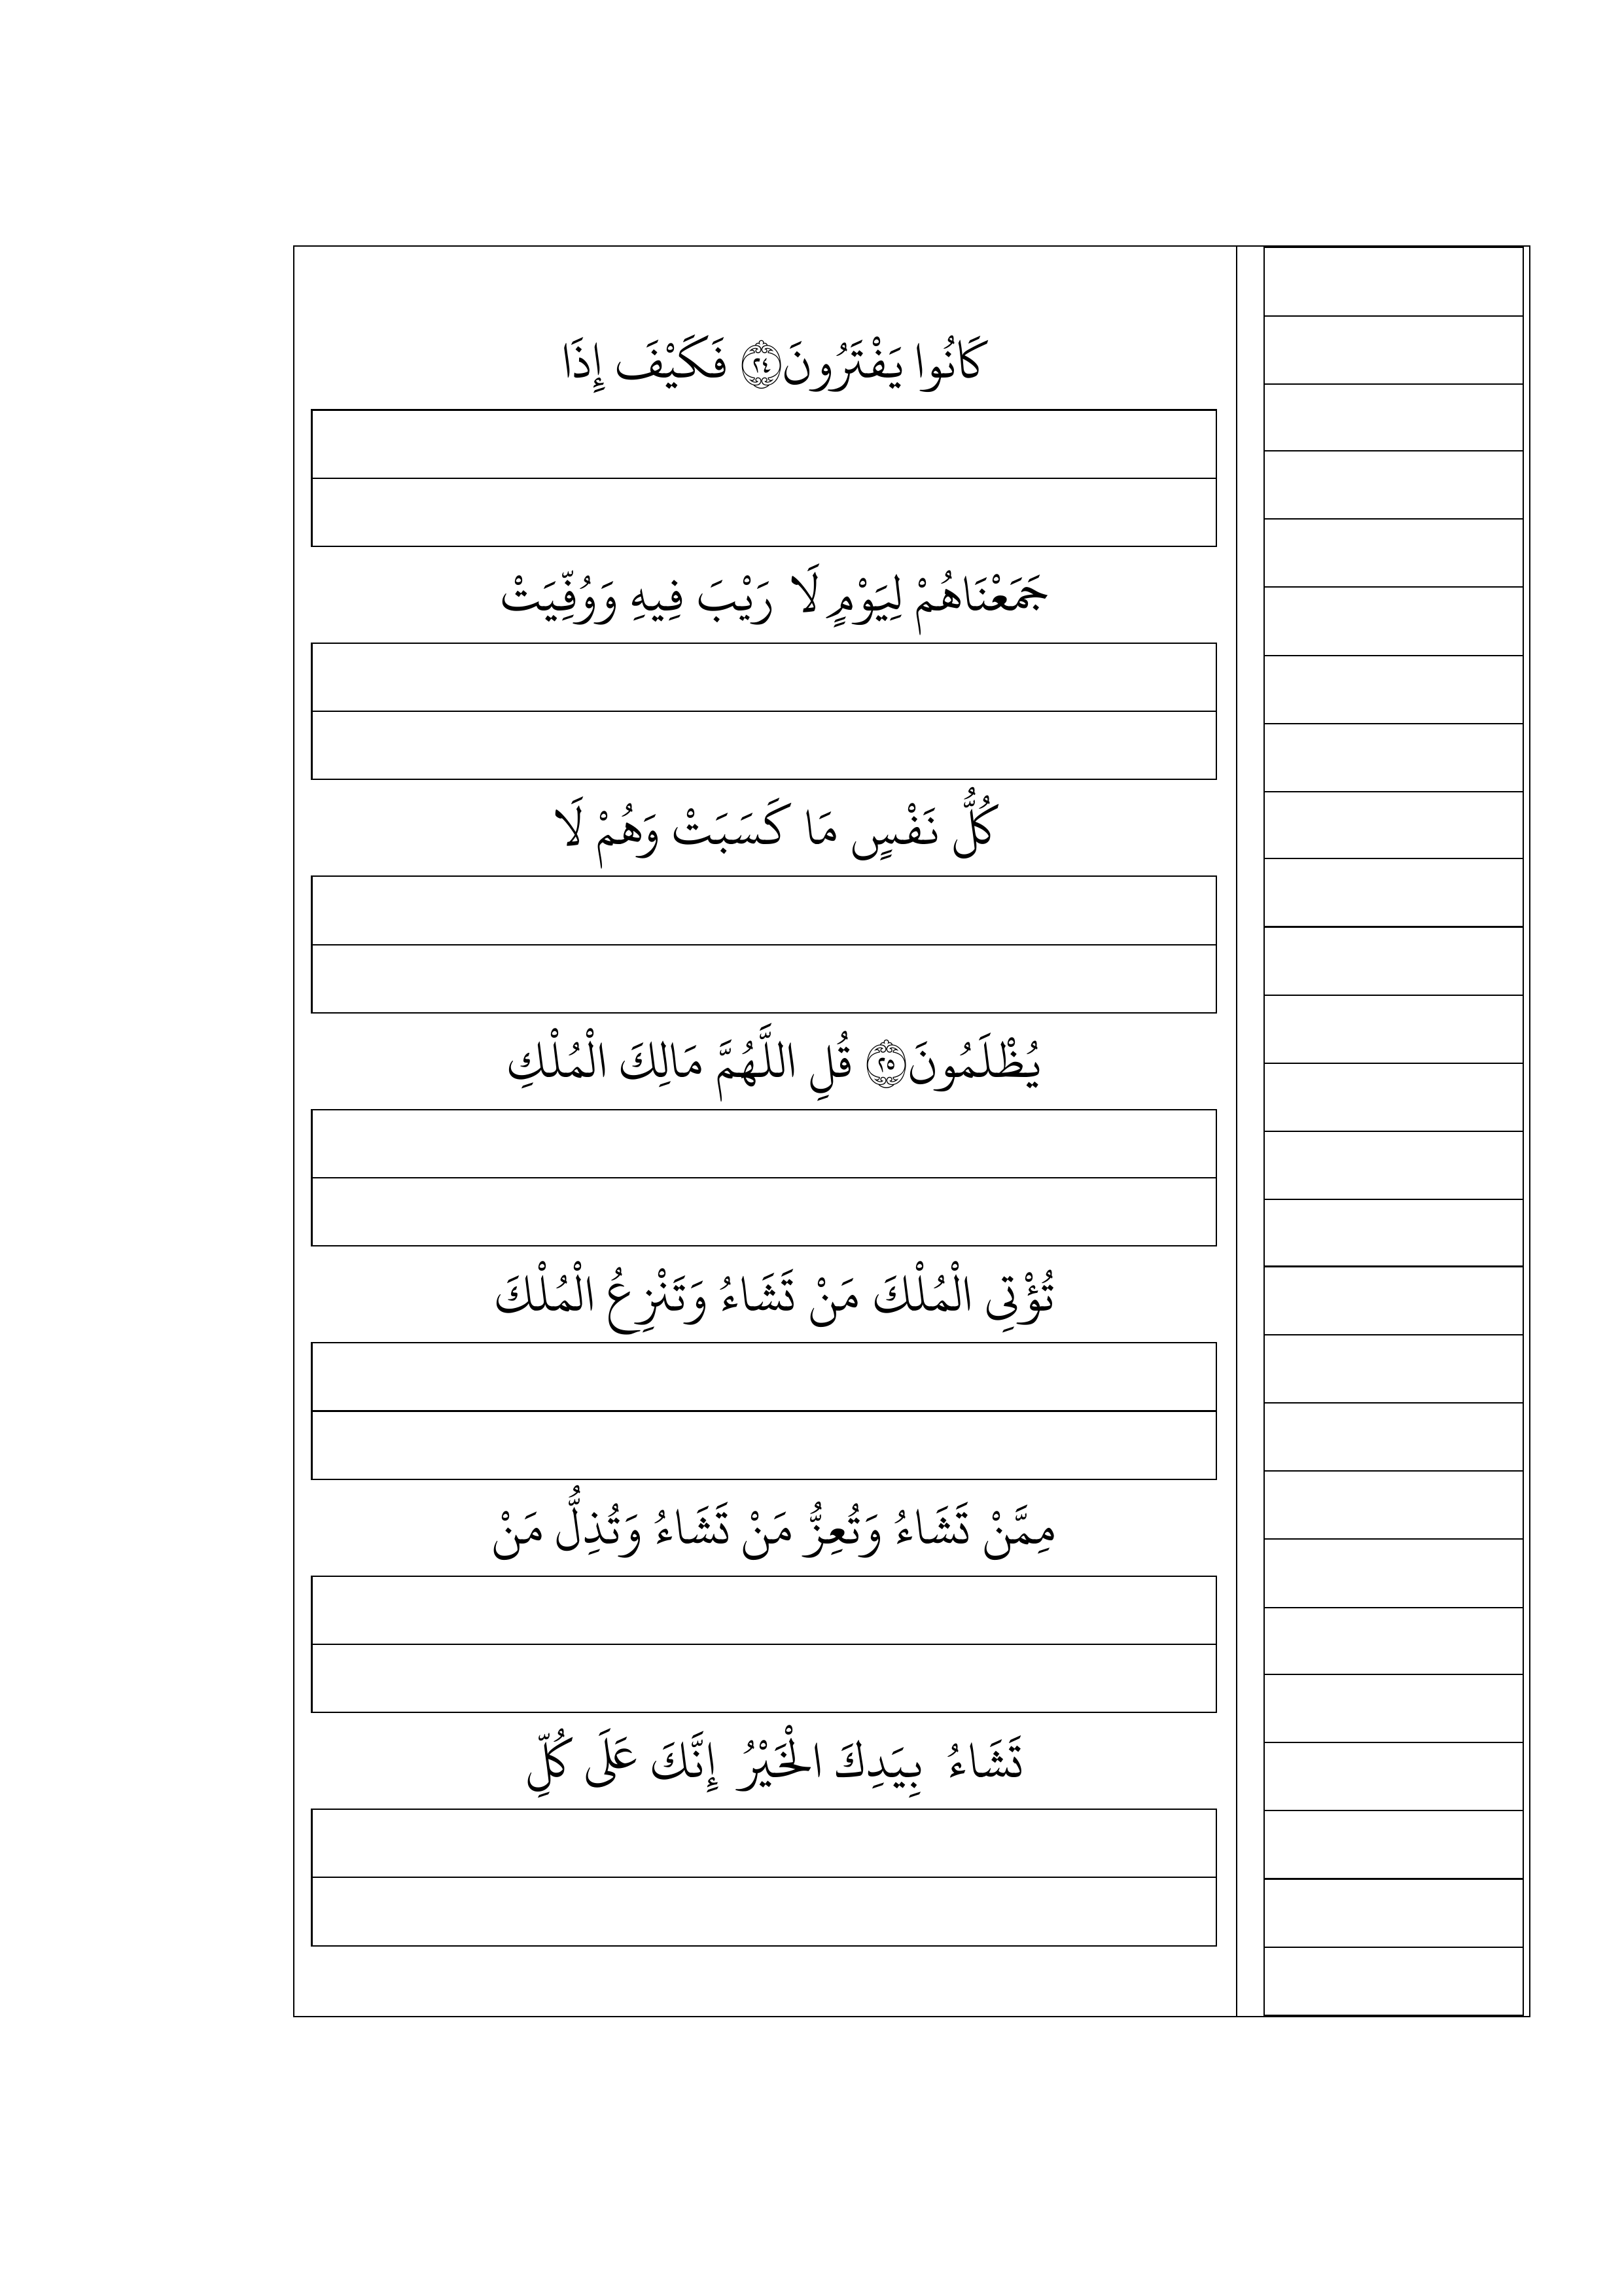 كَانُوا يَفْتَرُونَ ﴿٢٤﴾ فَكَيْفَ إِذَا
جَمَعْنَاهُمْ لِيَوْمٍ لَا رَيْبَ فِيهِ وَوُفِّيَتْ
كُلُّ نَفْسٍ مَا كَسَبَتْ وَهُمْ لَا
يُظْلَمُونَ ﴿٢٥﴾ قُلِ اللَّهُمَّ مَالِكَ الْمُلْكِ
تُؤْتِي الْمُلْكَ مَنْ تَشَاءُ وَتَنْزِعُ الْمُلْكَ
مِمَّنْ تَشَاءُ وَتُعِزُّ مَنْ تَشَاءُ وَتُذِلُّ مَنْ
تَشَاءُ بِيَدِكَ الْخَيْرُ إِنَّكَ عَلَى كُلِّ